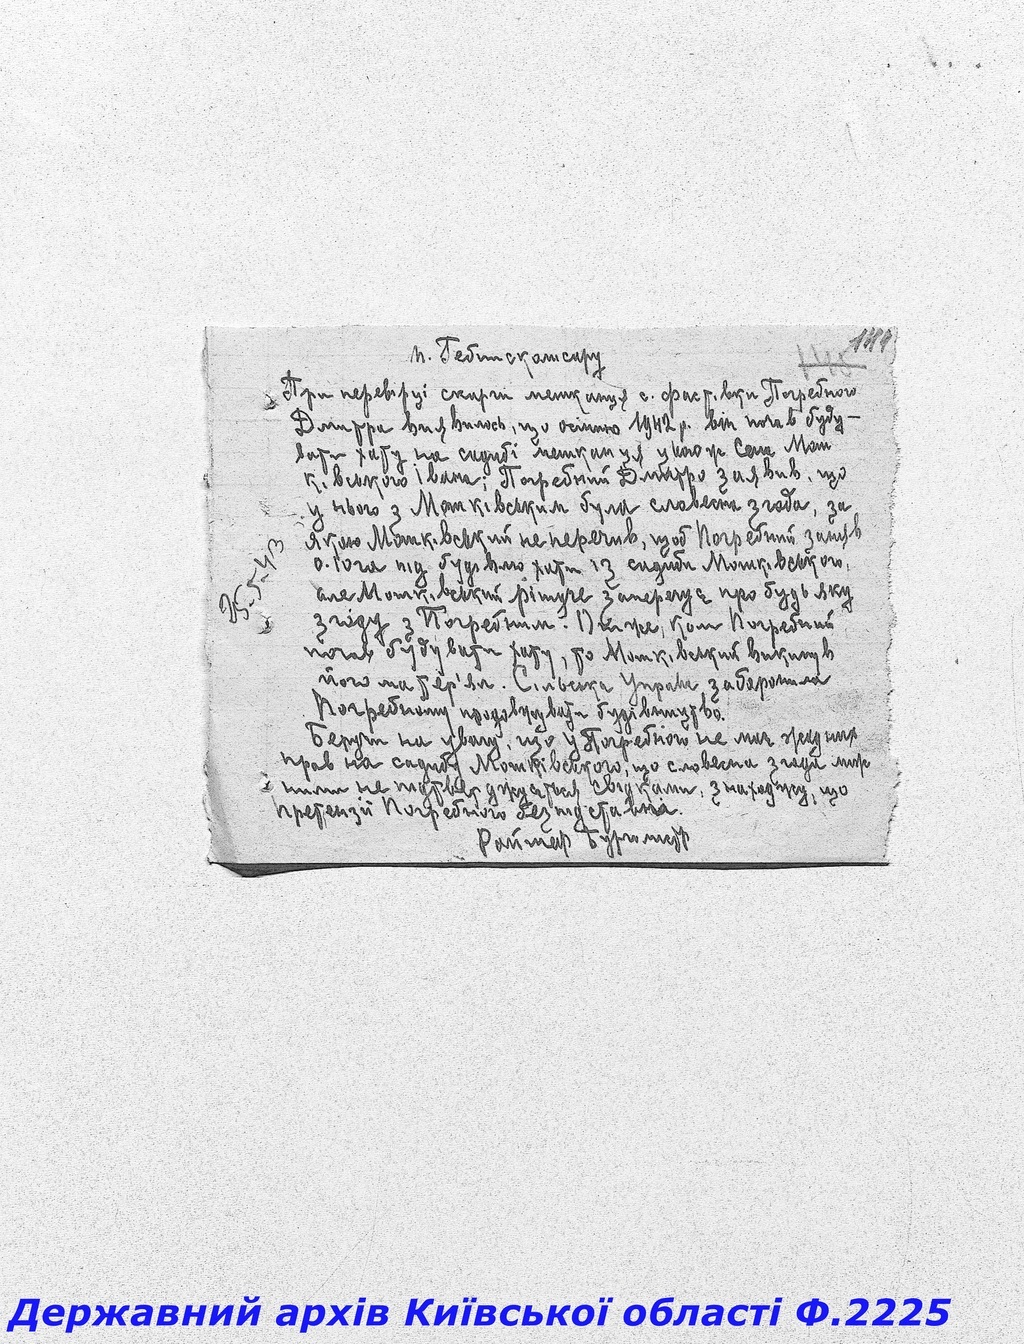 п. Гебітскомісару
При перевірці скарги мешканця с. Фастівки Погребного
Дмитра виявилось, що осінню 1942 р. він почав буду-
вати хату на садибі мешканця цього ж села Мош
ківського Івана; Погребний Дмитро заявив, що
у нього з Мошківським була словесна згода, за
якою Мошківський не перечив, щоб Погребний зайняв
0.10га під будівлю хати із садиби Мошківського,
але Мошківський рішуче заперечує про будь яку
згоду з Погребним. Пізніше, коли Погребний
почав будувати хату, то Мошківський викинув
його матер'ял. Сільська Управа заборонила
Погребному продовжувати будівництво.
Беручи на увагу, що у Погребного не має жадних
прав на садибу Мошківського, що словесна згода між
ними не підтверджується свідками, знаходжу, що
претензії Погребного безпідставна.
Райшеф Бургомістр
25-5-43
145
Державний архів Київської області Ф.2225